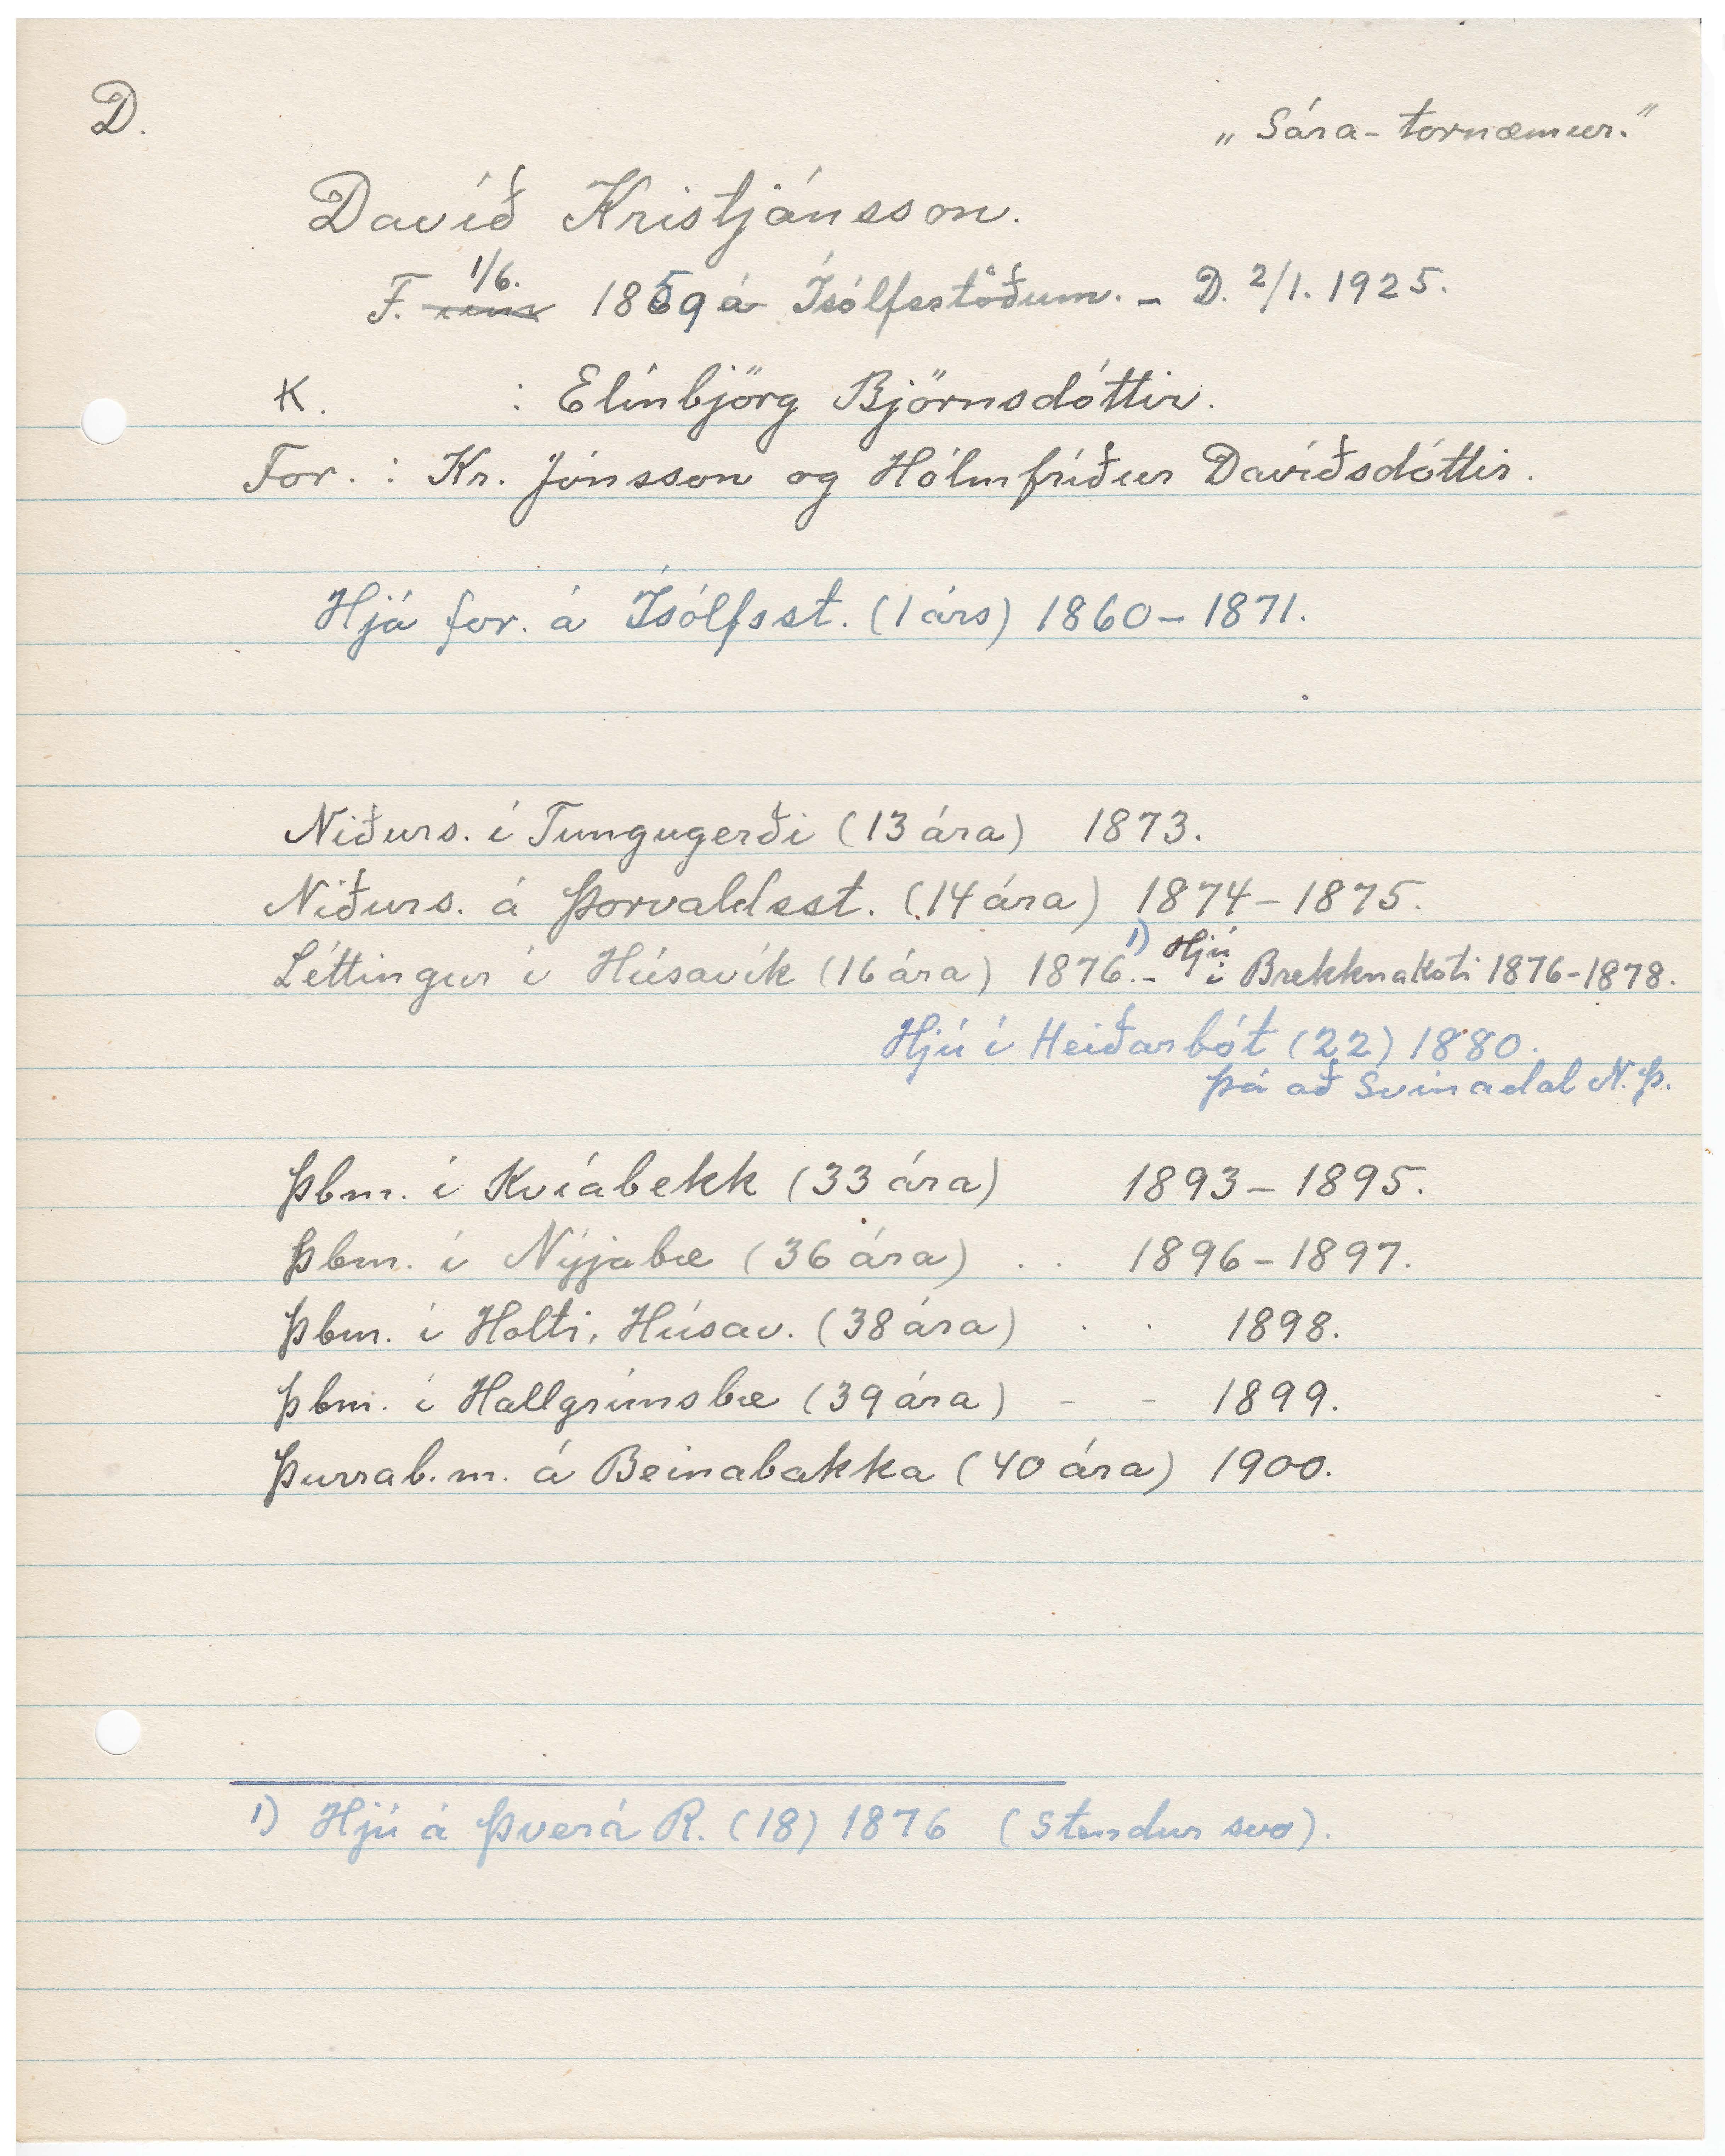 D.
„Sára-tornæmur."
Davíð Kristjánsson.
F. 1/6. 1859 á Ísólfsstöðum. - D. 2/1. 1925.
K. : Elínbjörg Björnsdóttir.
For. : Kr. Jónsson og Hólmfríður Davíðsdóttir.
Hjá for. á Ísólfsst. (1 árs) 1860-1871.
Niðurs. í Tungugerði (13 ára) 1873.
Niðurs. á Þorvaldsst. (14 ára) 1874-1875.
Léttingur í Húsavík (16 ára) 1876.1) - Hjú í Brekknakoti 1876-1878.
Hjú í Heiðarbót (22) 1880.
Þá að Svínadal N.Þ.
Þbm. í Kvíabekk (33 ára) 1893-1895.
Þbm. í Nýjabæ (36 ára) . . 1896-1897.
Þbm. í Holti, Húsav. (38 ára) . . 1898.
Þbm. í Hallgrímsbæ (39 ára) - - 1899.
Þurrab.m. á Beinabakka (40 ára) 1900.
1) Hjú á Þverá R. (18) 1876 (Stendur svo).